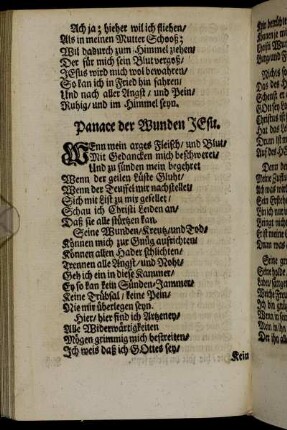 Ach ja; hieher wil ich fliehen/
Als in meinen Mutter Schooß;
Wil dadurch zum Himmel ziehen/
Der für mich sein Blut vergoß/
JEsus wird mich wol bewahren/
So kan ich in Fried hin fahren/
Und nach aller Angst/ und Pein/
Ruhig/ und im Himmel seyn.
Panace der Wunden JEsu.
WEnn mein arges Fleisch/ und Blut/
Mit Gedancken mich beschweret/
Und zu sünden mein begehret
Wenn der geilen Lüste Gluht/
Wenn der Teufel mit nachstellet/
Sich mit List zu mir gesellet/
Schau ich Christi Leiden an/
Daß sie alle stürtzen kan.
Seine Wunden/ Kreutz/ und Tod/
Können mich zur Gnüg aufrichten/
Können allen Hader schlichten/
Trennen alle Angst/ und Noht/
Geh ich ein in diese Kammer/
Ey so kan kein Sünden-Jammer/
Keine Trübsal/ keine Pein/
Nie mir überlegen seyn.
Hier/ hier find ich Artzeney/
Alle Widerwärtigkeiten
Mögen grimmig mich bestreiten/
Ich weis daß ich GOttes sey/
Kein